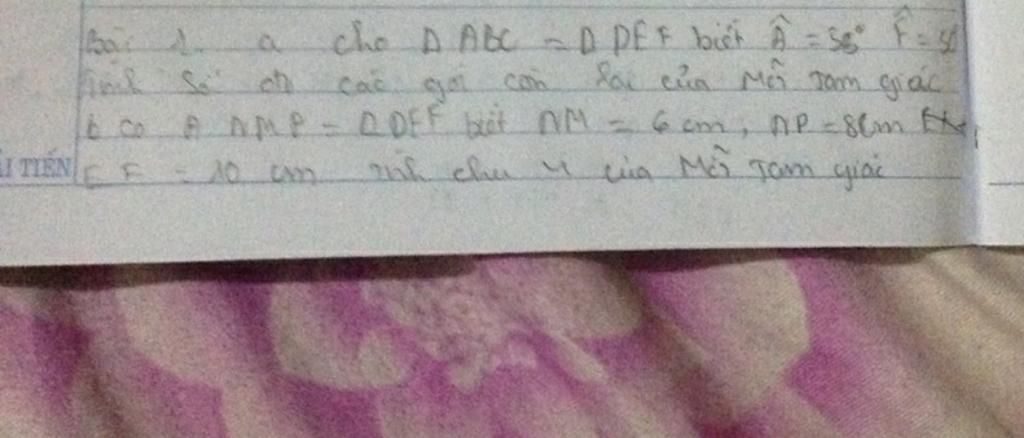 Bài 1. a cho Δ ABC = Δ DEF biết Â = 58° F̂ = 5
Tính số đo các góc còn lại của Mỗi Tam giác
b co Δ NMP = Δ DEF biết NM = 6 cm, NP = 8cm
I TIẾN EF = 10 cm tính chu vi của Mỗi Tam giác